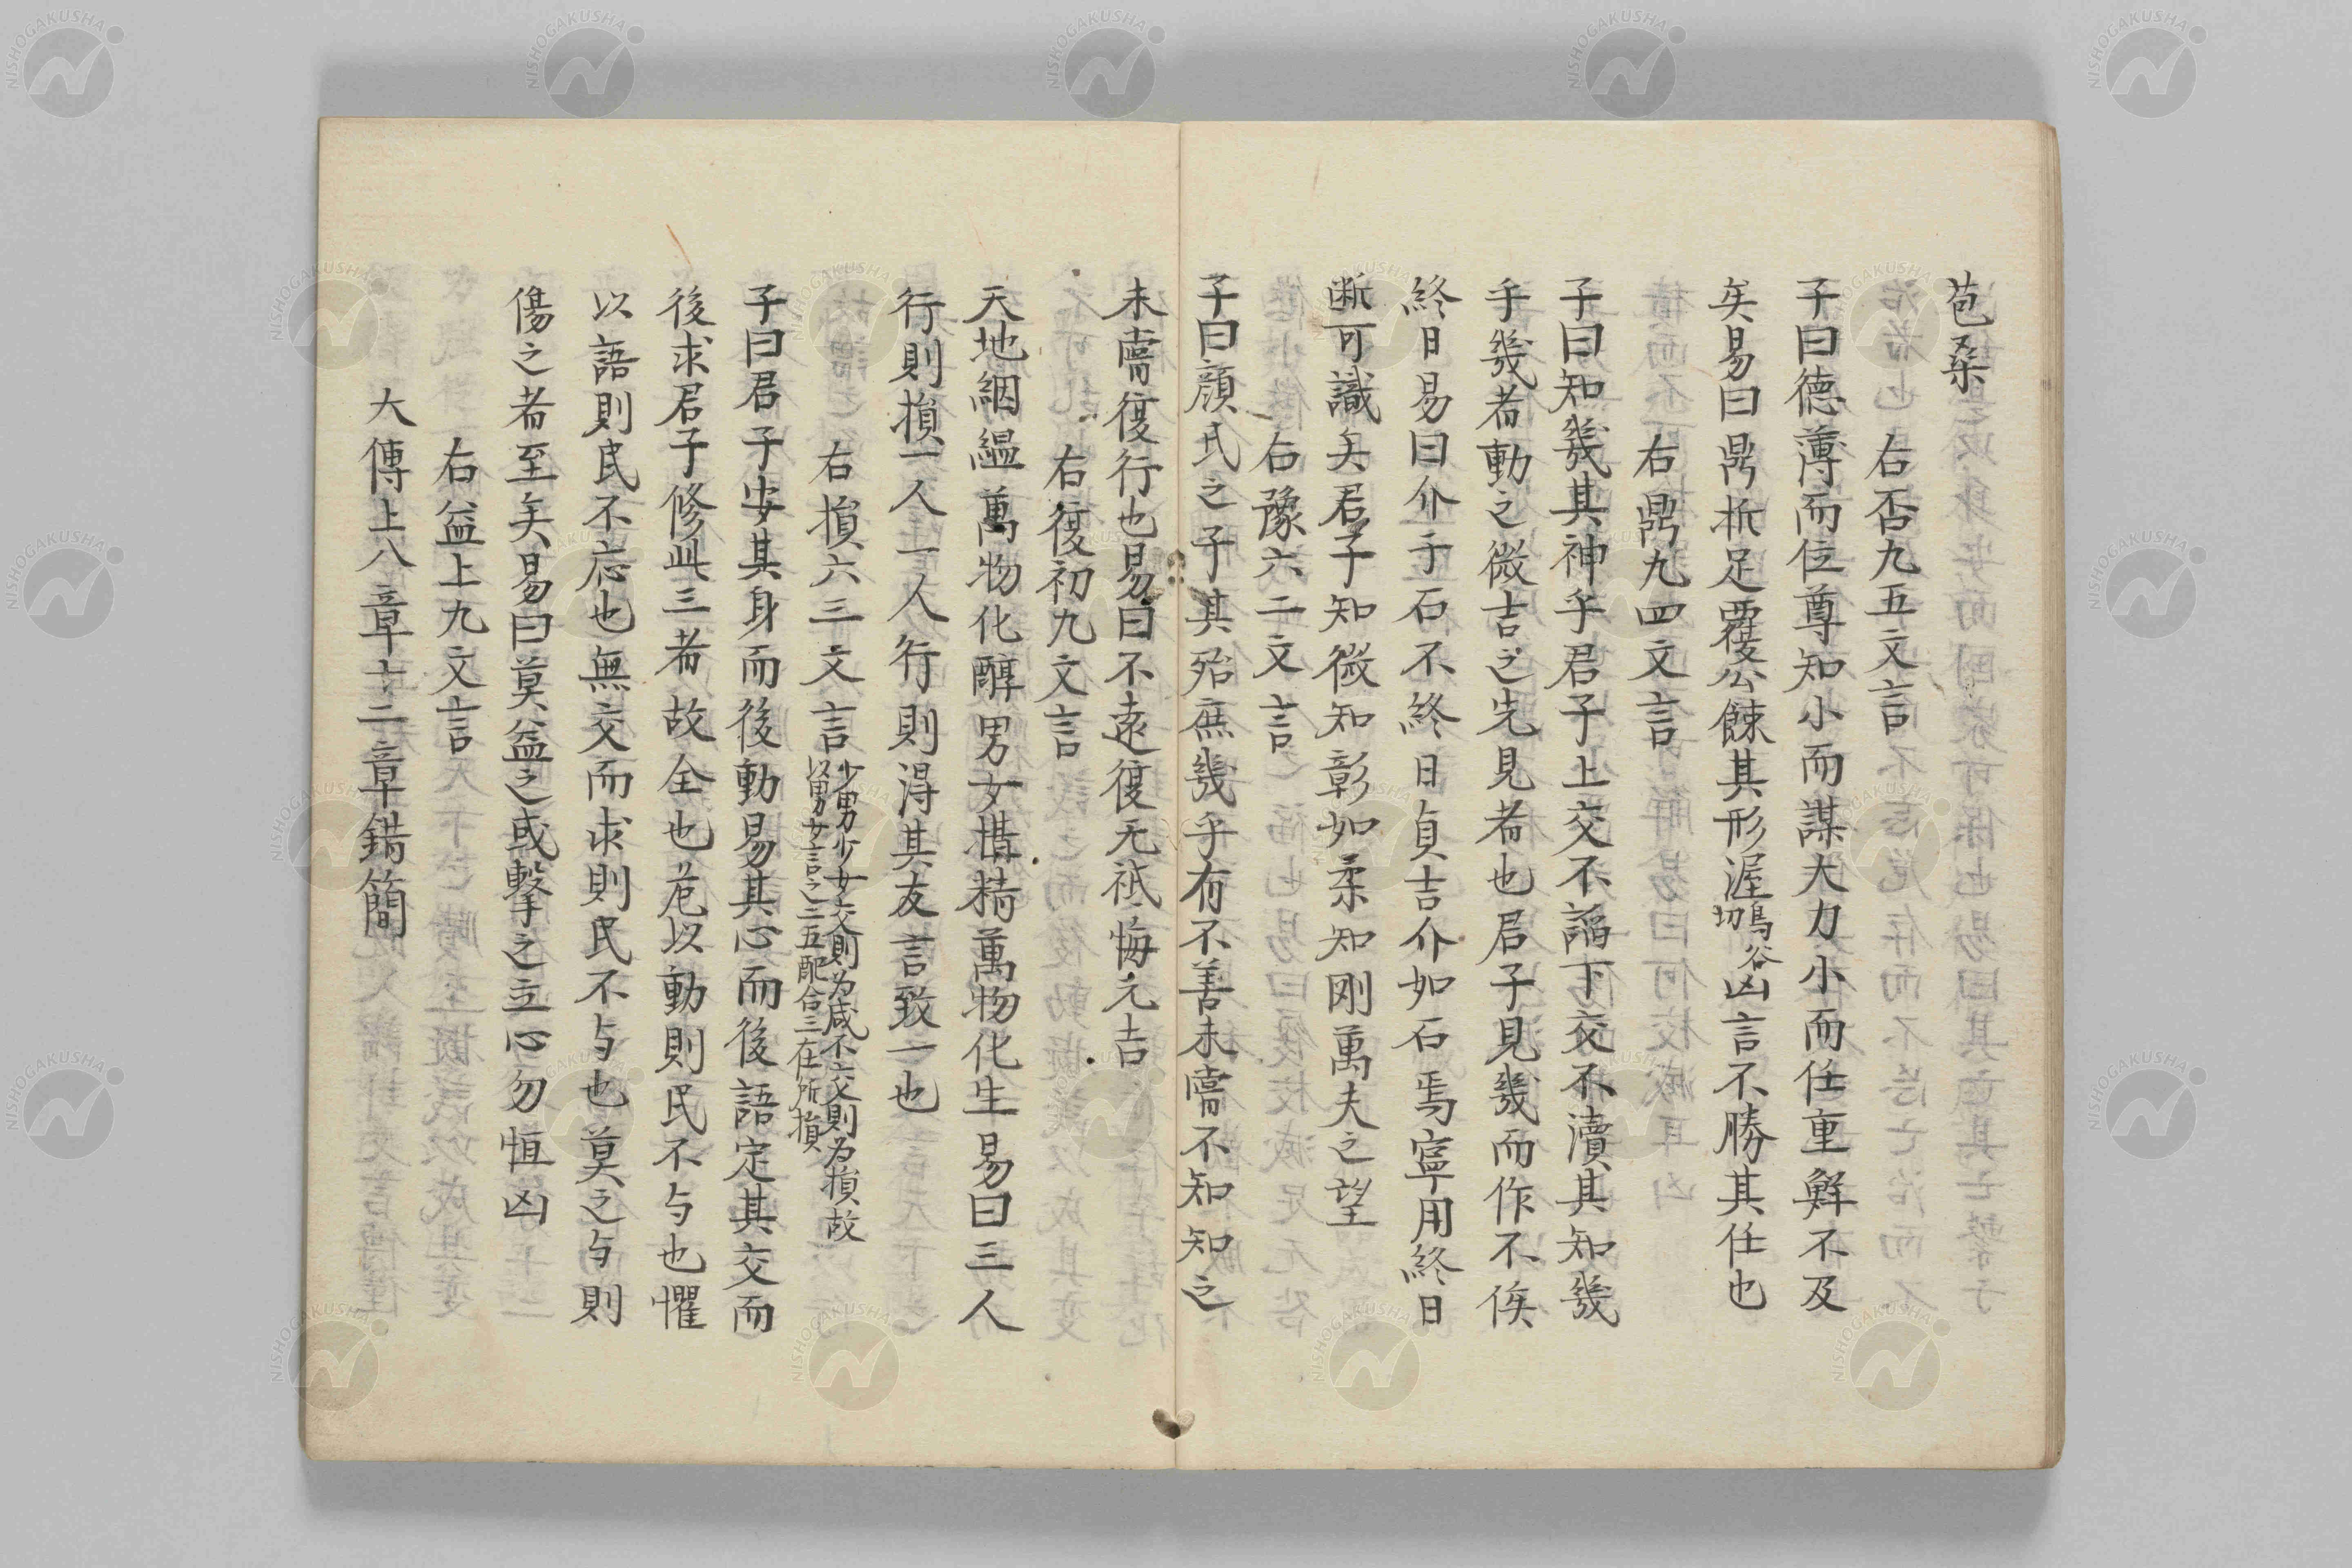 苞桑
右否九五文言
子曰德薄而位尊知小而謀大力小而任重鮮不及
矣易曰鼎折足覆公餗其形渥鳥谷切凶言不勝其任也
右鼎九四文言
子曰知幾其神乎君子上交不諂下交不瀆其知幾
乎幾者動之微吉之先見者也君子見幾而作不俟
終日易曰介于石不終日貞吉介如石焉寧用終日
断可識矣君子知微知彰知柔知剛萬夫之望
右豫六二文言
子曰顔氏之子其殆庶幾乎有不善未甞不知知之
未甞復行也易曰不遠復无祇悔元吉
右復初九文言
天地絪縕萬物化醇男女構精萬物化生易曰三人
行則損一人一人行則得其友言致一也
右損六三文言少男少女交則为咸不交則为損故
以男女言之二五配合三在所損
子曰君子安其身而後動易其心而後語定其交而
後求君子修此三者故全也危以動則民不与也懼
以語則民不応也無交而求則民不与也莫之与則
傷之者至矣易曰莫益之或擊之立心勿恒凶
右益上九文言
大傳上八章十二章錯簡
NISHOGAKUSHA